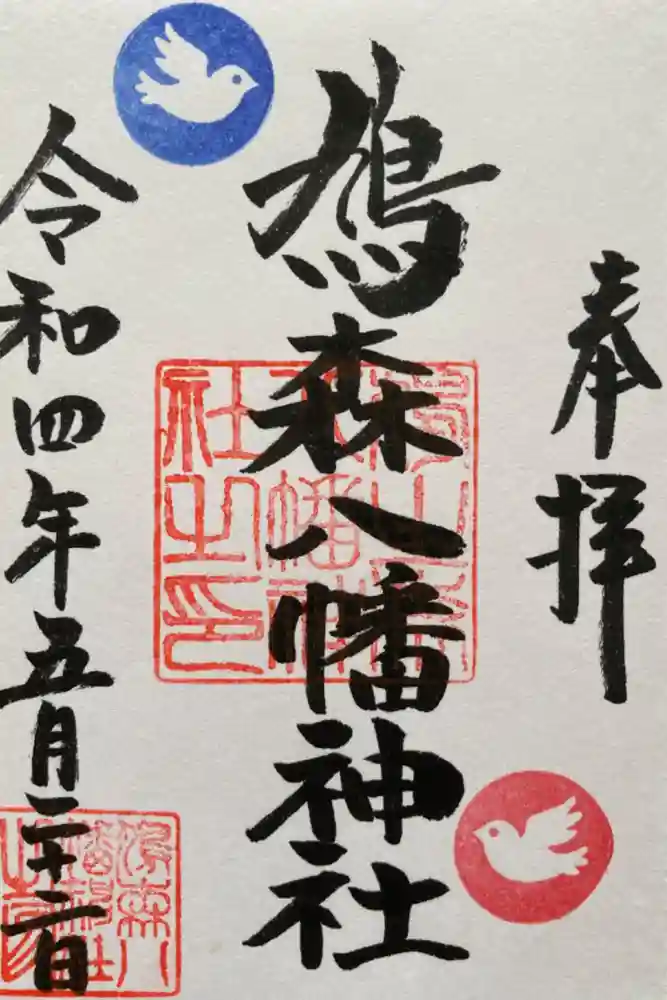 奉拝
鳩森八幡神社
令和四年五月二十二日
鳩之森
八幡神
社之印
鳩森八
幡神社